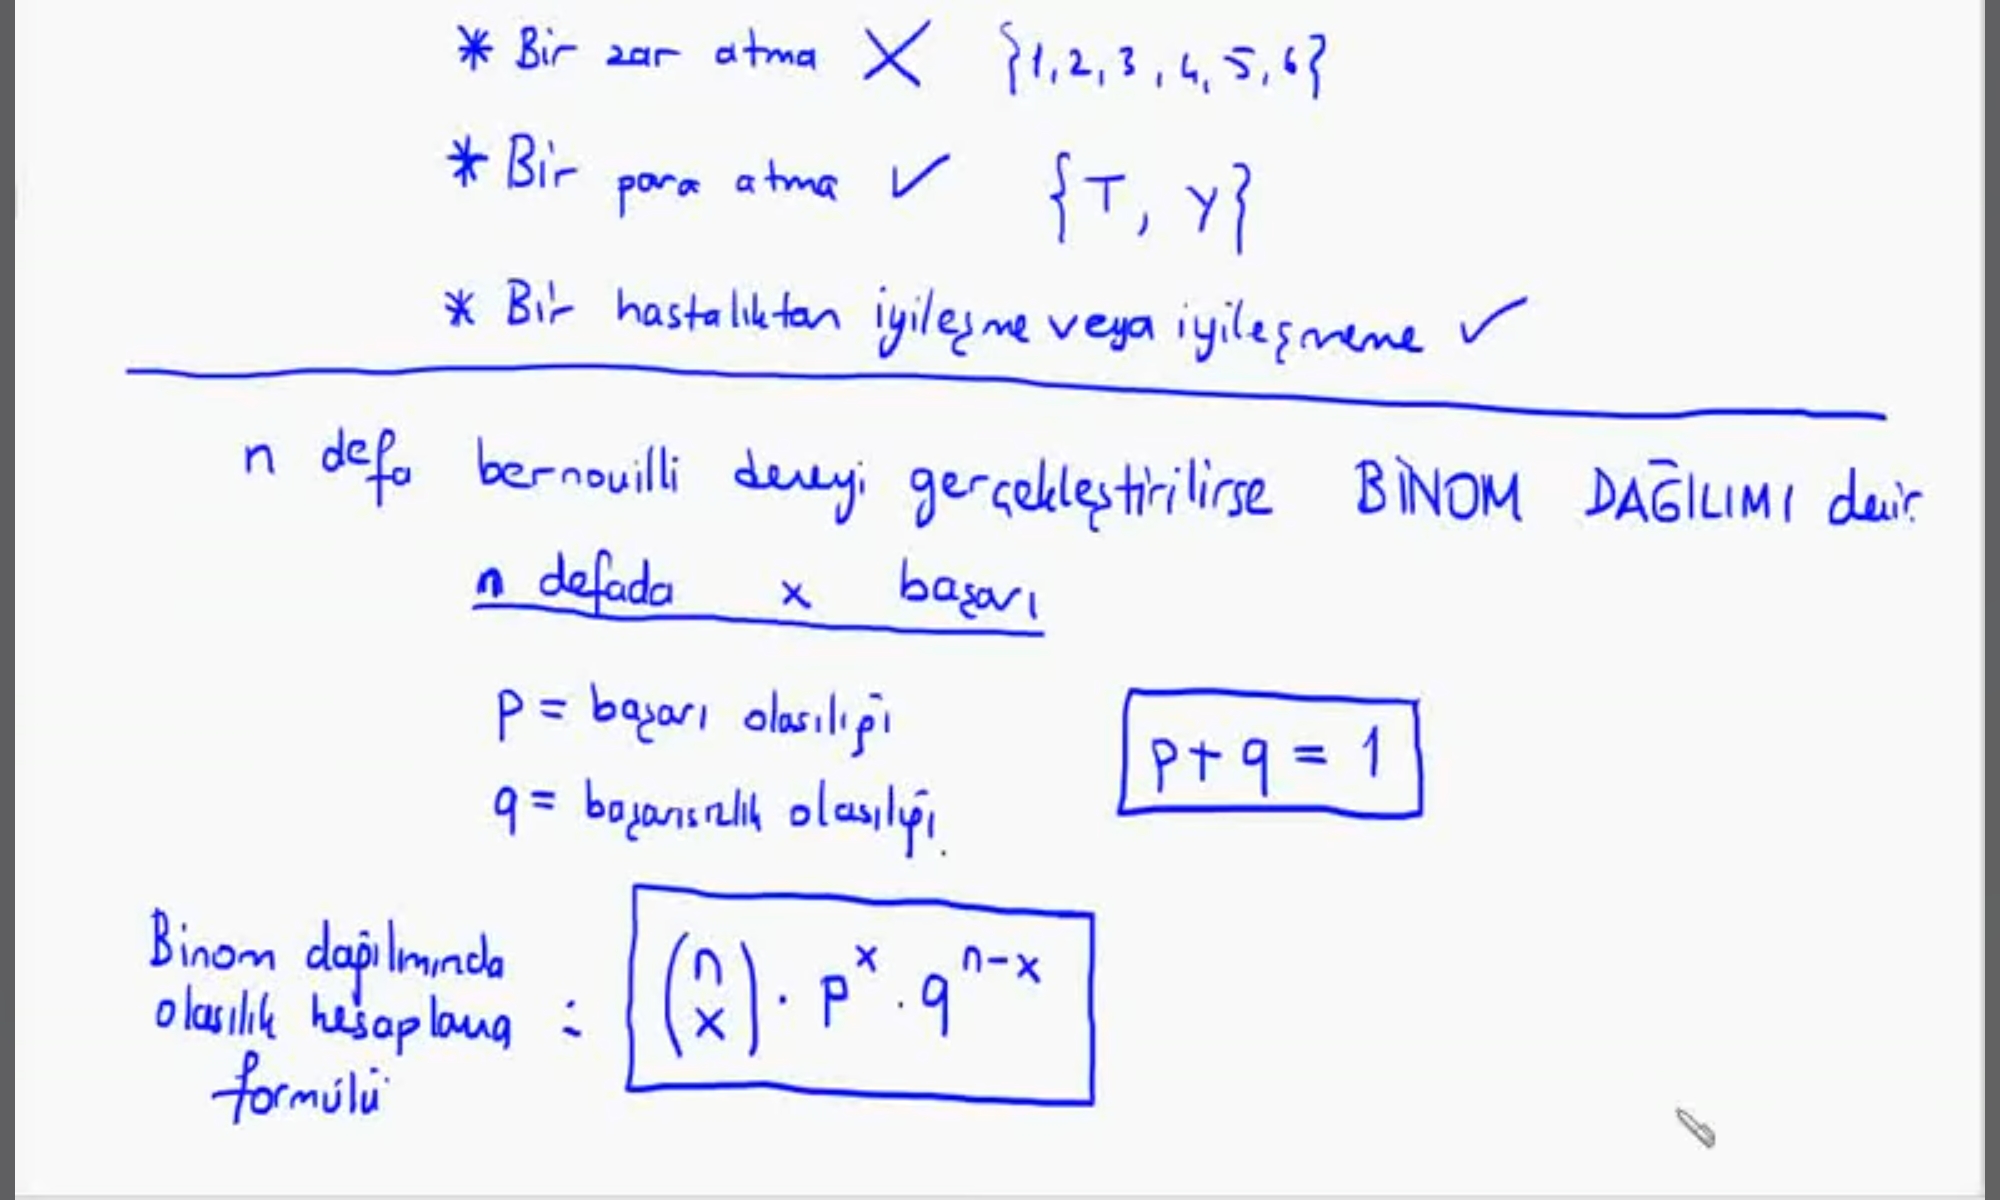 * Bir zar atma X {1,2,3,4,5,6}
* Bir para atma ✓ {T, Y}
* Bir hastalıktan iyileşme veya iyileşmeme ✓
n defa bernouilli deneyi gerçekleştirilirse BİNOM DAĞILIMI denir.
n defada x başarı
p = başarı olasılığı
p + q = 1
q = başarısızlık olasılığı.
Binom dağılımında
olasılık hesaplama :
formülü
(n x) . p^x . q^(n-x)